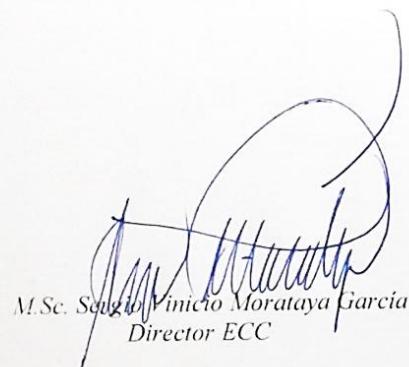 M.Sc. Sergio Vinicio Morataya García
Director ECC